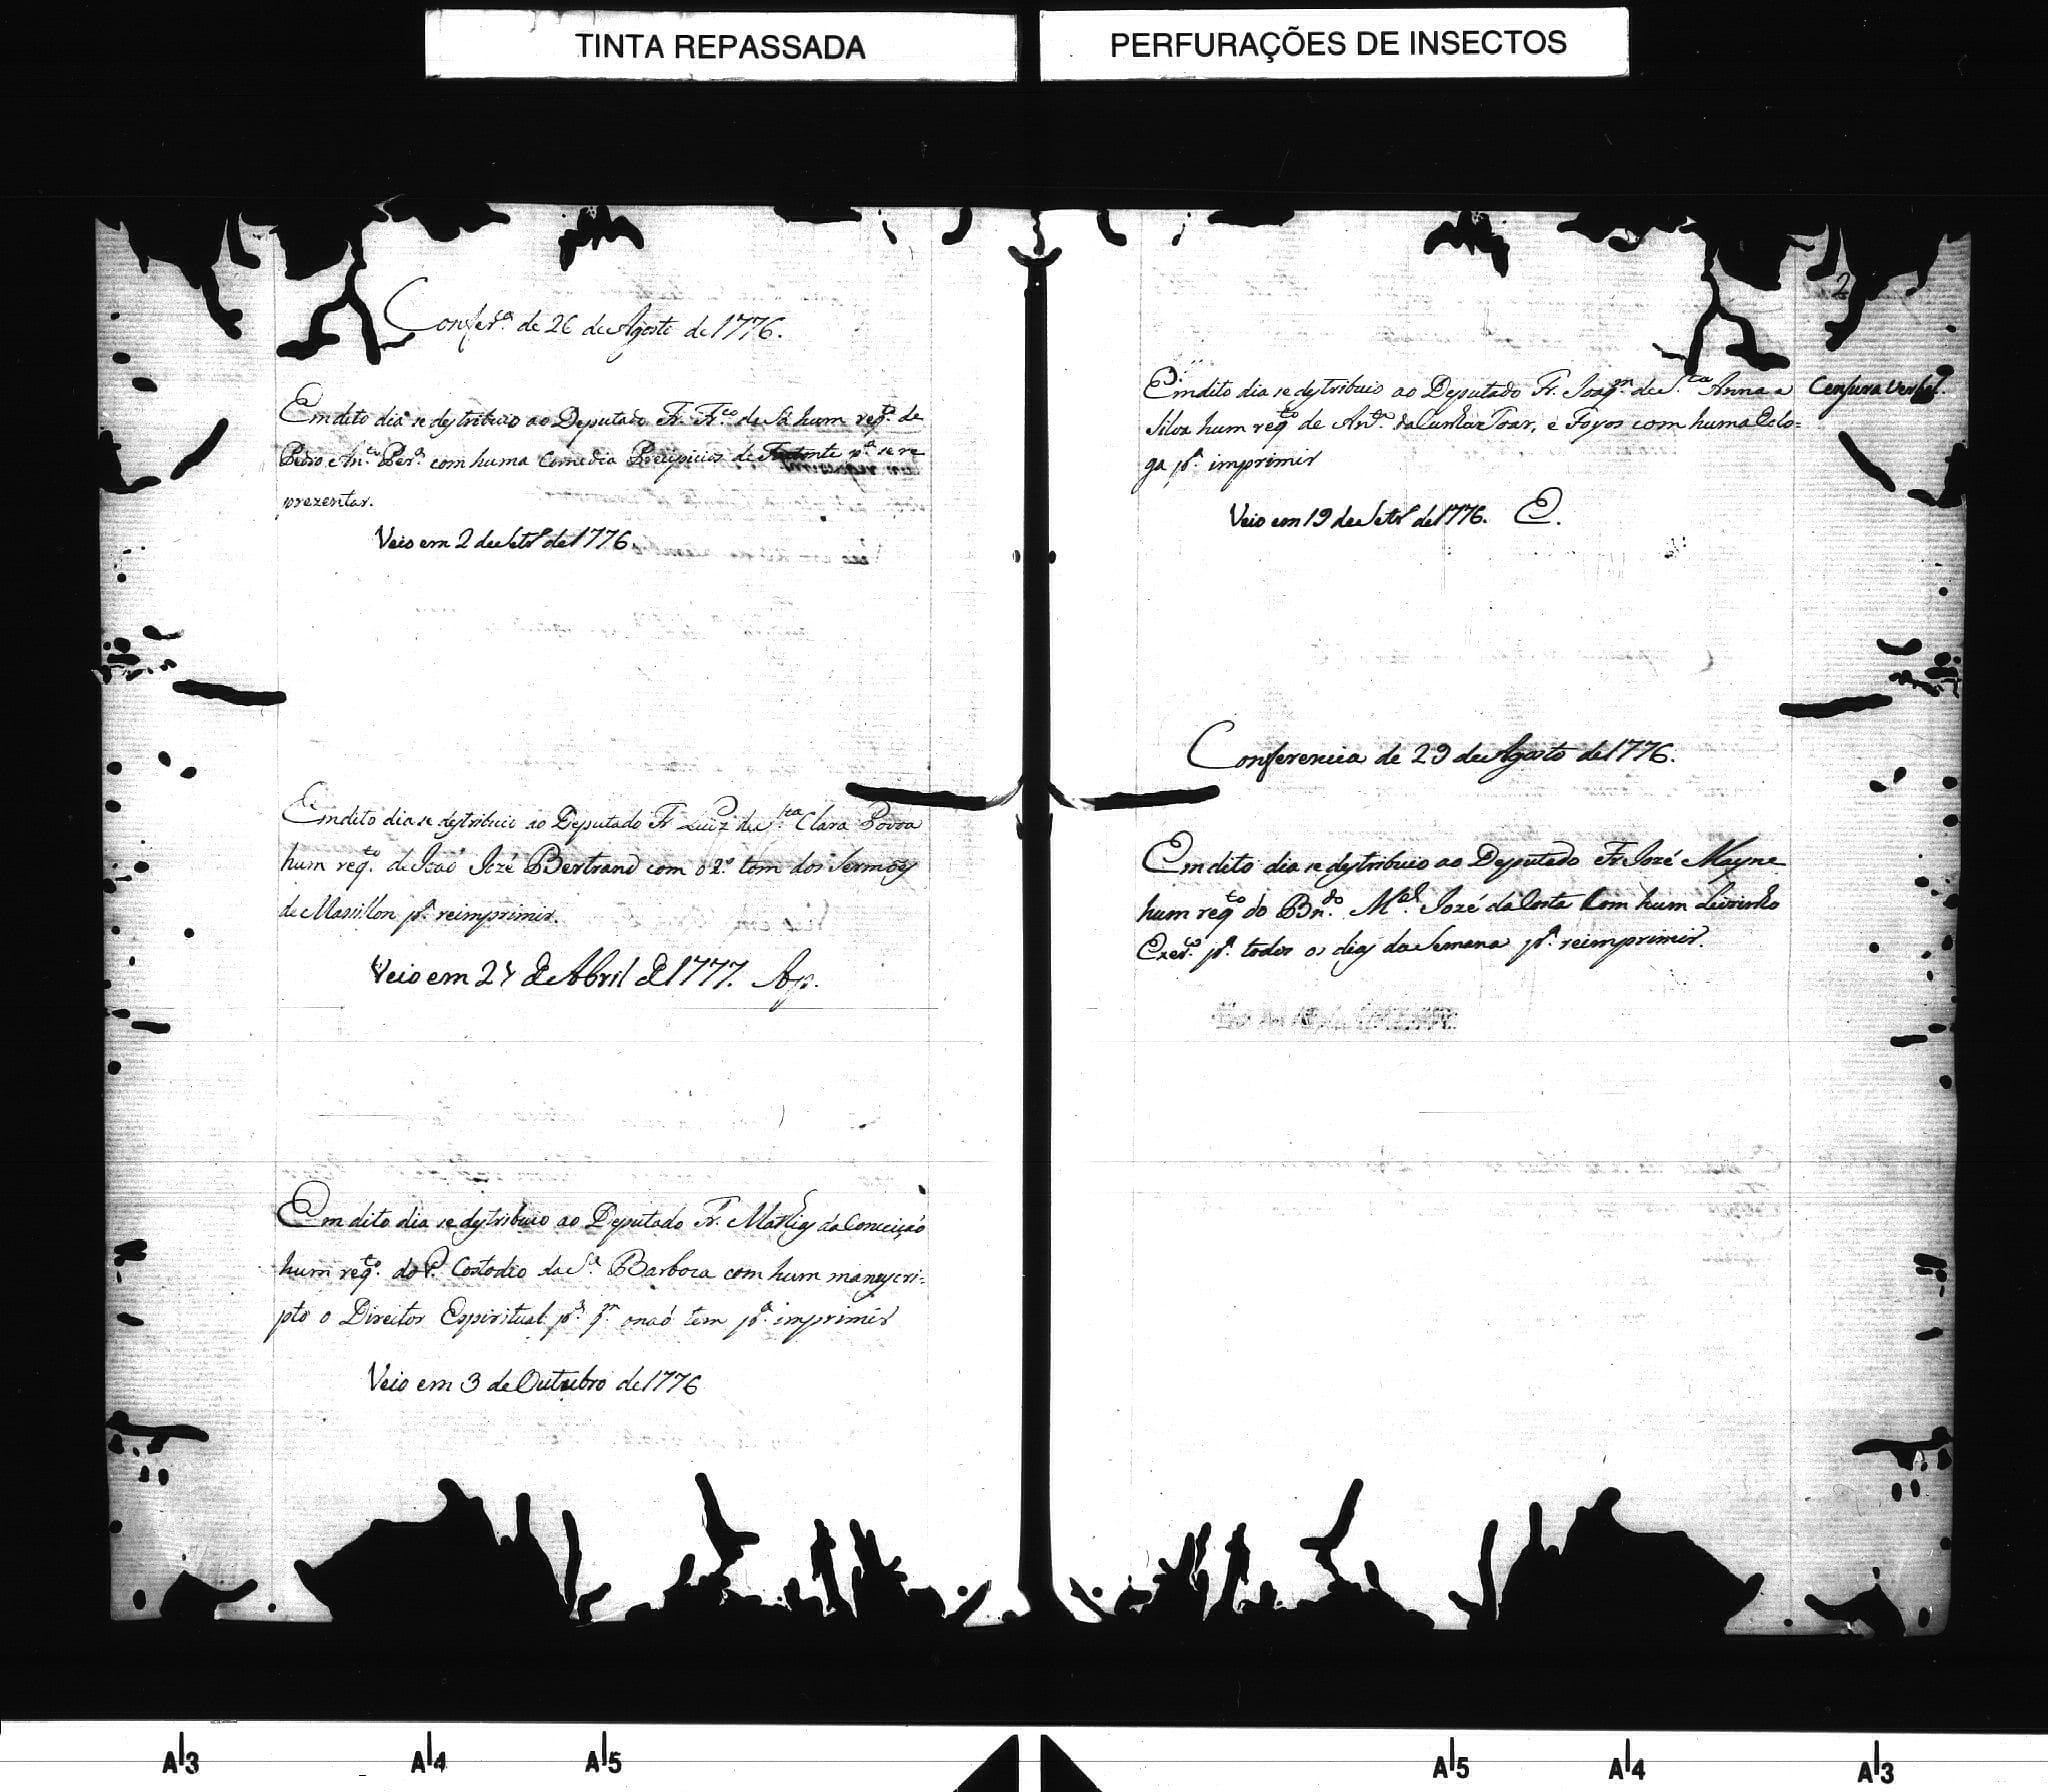 TINTA REPASSADA
PERFURAÇÕES DE INSECTOS
Confer.ª de 26 de Agosto de 1776.
Em dito dia se destribuio ao Deputado Fr. Fr.co de Sá hum reqt.º de
Pedro e An.to Per.ª com huma Comedia Precipicios de p.ª se re
prezentar.
Veio em 2 de Setr.º de 1776.
Em dito dia se destribuio ao Deputado Fr. Luiz de S.ta Clara Povoa
hum reqt.º de Joaõ Jozé Bertrand com o 2.º tom dos Sermoẽs
de Massillon p.ª reimprimir.
Veio em 27 de Abril de 1777. Ap.
Em dito dia se destribuio ao Deputado Fr. Mathias da Conceiçaõ
hum reqt.º do P. Costodio da S.ª Barboza com hum manuscri-
pto o Director Espiritual p.ª q.m o naõ tem p.ª imprimir
Veio em 3 de Outubro de 1776
2
Em dito dia se destribuio ao Deputado Fr. Joaq.m de S.ta Anna e
Silva hum reqt.º de Ant.º da Cunha Toar, e Foyos com huma Eclo-
ga p.ª imprimir
Censura verbal.
Veio em 19 de Setr.º de 1776. E.
Conferencia de 29 de Agosto de 1776.
Em dito dia se destribuio ao Deputado Fr. Jozé Mayne
hum reqt.º do Bn.do M.el Jozé da Costa Com hum Livrinho
Exer.co p.ª todos os dias da Semana p.ª reimprimir.
A3
A4
A5
A5
A4
A3